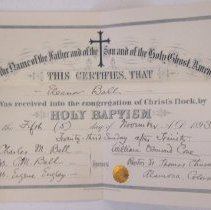 the Name of the Father and of the Son and of the Holy Ghost, Amen
THIS CERTIFIES, THAT
Eleanor Ball
Was received into the congregation of Christ's flock, by
HOLY BAPTISM
on the Fifth (5) day of November A.D. 1893
Twenty-third Sunday after Trinity
Charles M. Ball
William Edward
M. Ball
Rector St. Thomas Church
Eugene Engley
Alamosa Colorado